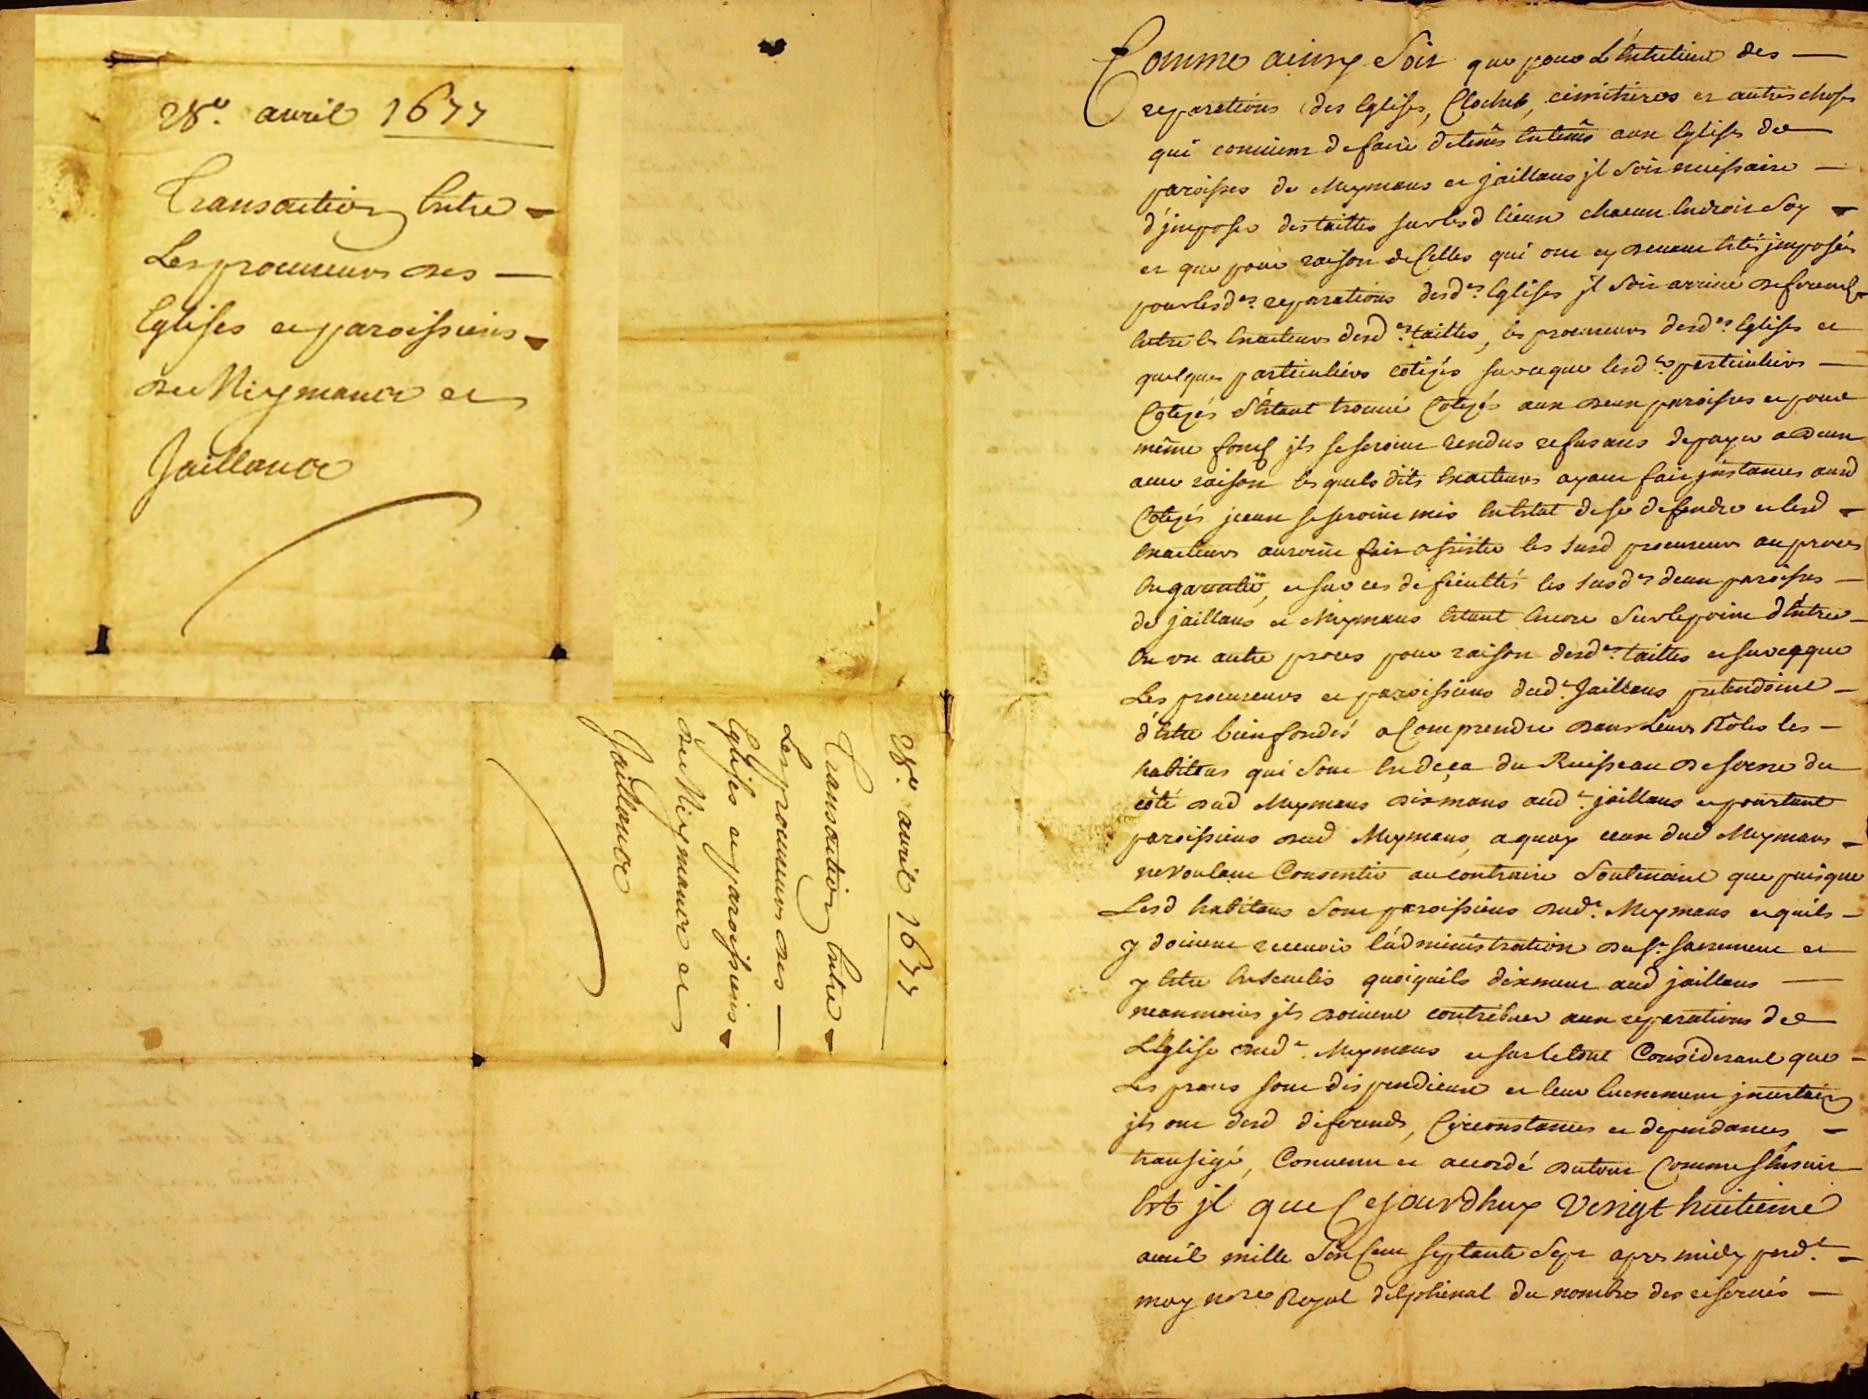 28e. avril 1677
Transaction Entre
Les procureurs des
Eglises et paroissiens
de Meymans et
Jaillans
28e. avril 1677
Transaction Entre
Les procureurs des
Eglises et paroissiens
de Meymans et
Jaillans
Comme ainsy Soit que pour L'Entretient des
reparations des Eglises, Clochers, cimitieres et autres choses
qui convient de faire de tems En tems aux Eglises de
paroisses de Meymans et jaillans jl Soit necessaire
d'jmposer des tailles sur lesd lieux chacun Endroit Soy
et que pour raison de Celles qui ont cy devant Etés jmposées
pour lesdes. reparations desdes. Eglises jl Soit arrivé diferends
Entre les Exacteurs desdes. tailles, les procureurs desdes. Eglises et
quelques particuliers cotizés sur ce que lesds. particuliers
Cotizés S'étant trouvé Cotizés aux deux paroisses et pour
même fonds jls se seroint rendus refusans de payer a deux
avec raison lesquels dits Exacteurs ayant fait jnstances auxd
Cotizés jceux se seroint mis En Etat de se defendre et lesd
Exacteurs auroint fait assister les susd procureurs au proces
En garantie, et sur ces dificultés les susdes deux paroisses
de jaillans et Meymans Etant Encore Sur le point d'Entrer
En un autre proces pour raison desdes. tailles et sur ce que
Les procureurs et paroissiens dudt. Jaillans pretendoint
d'être bien fondés a Comprendre dans Leurs Rôles les
habitans qui Sont En deça du Ruisseau de
côté dud Meymans dixmans audt. jaillans et pourtant
paroissiens dud Meymans, a quoy ceux dud Meymans
ne voulant Consentir au contraire Soutenoint que puisque
Lesd habitans Sont paroissiens dudt. Meymans et quils
y doivent recevoir l'administration du st. sacrement et
y être Ensevelis quoiquils dixment aud jaillans
neanmoins jls doivent contribuer aux reparations de
L'Eglise dudt. Meymans et sur le tout Considerant que
Les proces sont dispendieux et leur Evenement jncertain
jls ont desd diferends, Circonstances et dependances
transigé, Convenu et accordé du tout Comme S'Ensuit
Est jl que Cejourdhuy Vingt huitieme
avril mille Six Cent septante Sept apres midy pardt.
moy nore Royal delphinal du nombre des reservés